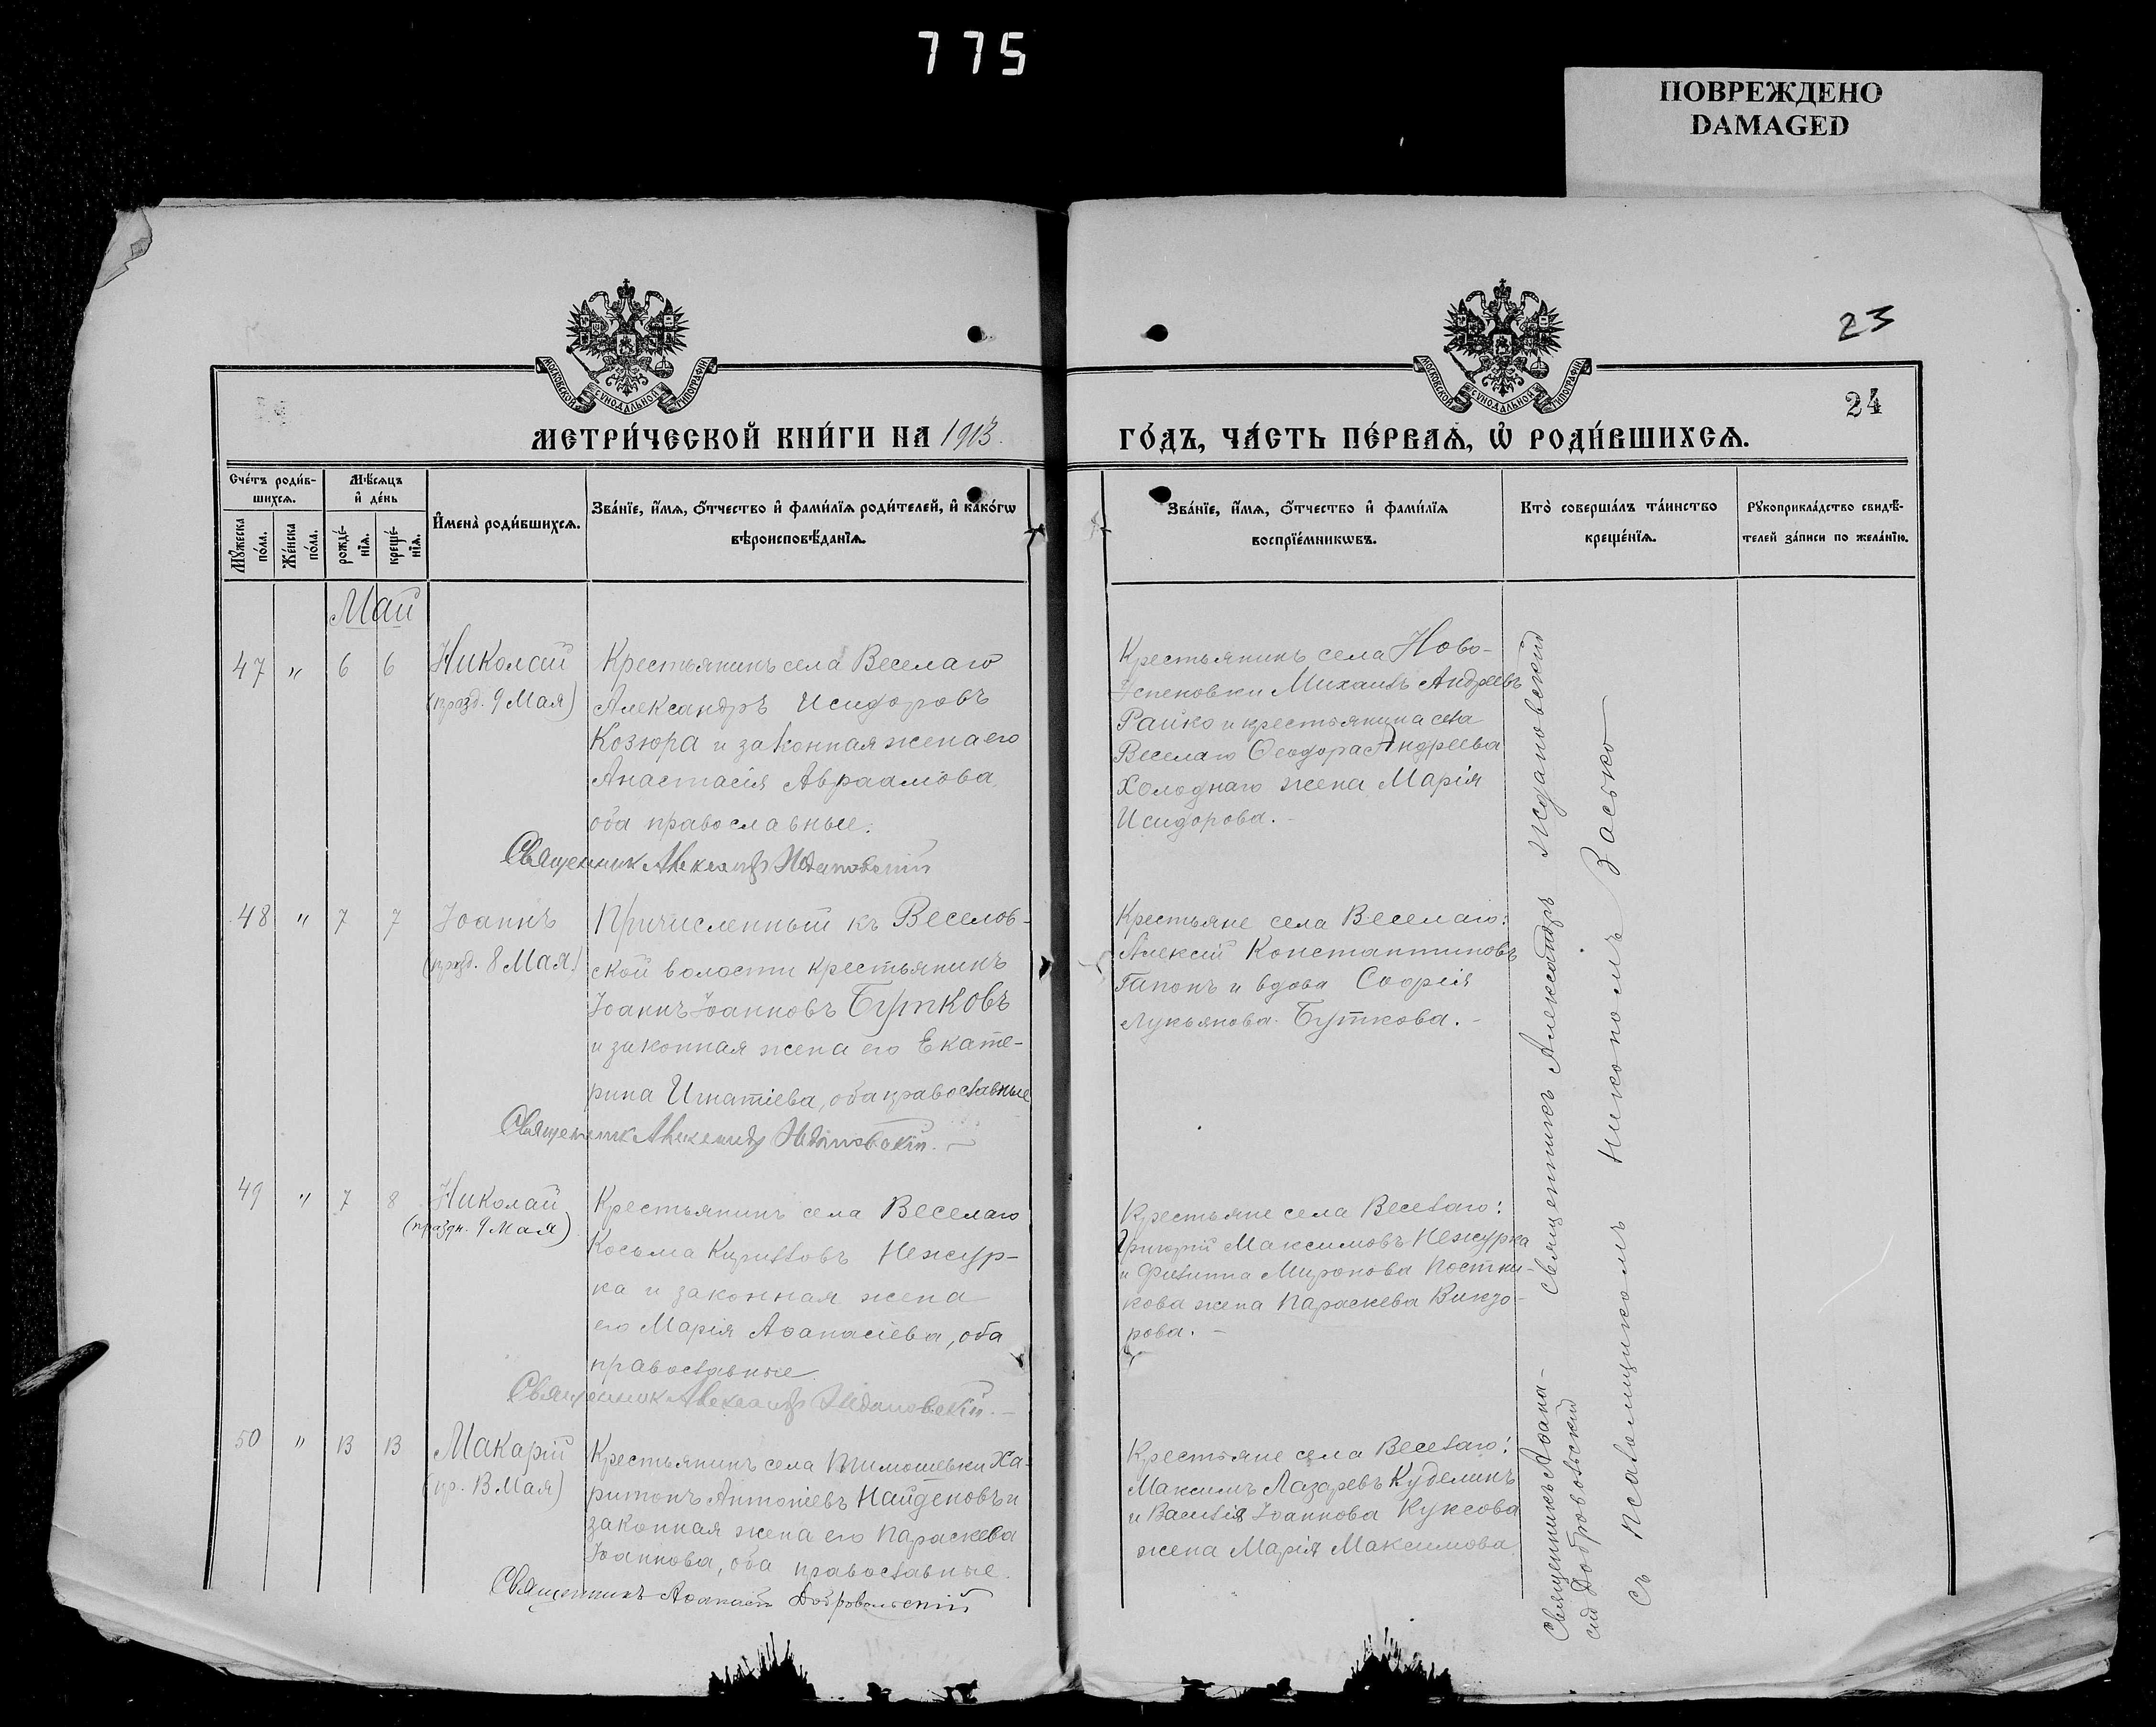 775
ПОВРЕЖДЕНО
DAMAGED
23
24
МОСКОВСКОЙ СѴНОДАЛЬНОЙ ТИПОГРАФІИ
МОСКОВСКОЙ СѴНОДАЛЬНОЙ ТИПОГРАФІИ
МЕТРИ́ЧЕСКОЙ КНИ́ГИ НА 1913.
ГО́ДЪ, ЧА́СТЬ ПЕ́РВАѦ, Ѡ҆ РОДИ́ВШИХСѦ.
Сче́тъ роди́в-
шихсѧ.
Мѣ́сѧцъ
и҆ де́нь
Мꙋ́жеска
по́ла.
Же́нска
по́ла.
рожде́-
нїѧ.
креще́-
нїѧ.
И҆мена̀ роди́вшихсѧ.
Зва́нїе, и҆́мѧ, ѻ҆́тчество и҆ фами́лїѧ роди́телей, и҆ како́гѡ
вѣроисповѣ́данїѧ.
Зва́нїе, и҆́мѧ, ѻ҆́тчество и҆ фами́лїѧ
воспрїе́мникѡвъ.
Кто̀ соверша́лъ та́инство
креще́нїѧ.
Рꙋкоприкла́дство свидѣ́-
телей за́писи по жела́нїю.
Май
47 " 6 6
Николай
(празд. 9 Мая)
Крестьянинъ села Веселаго
Александръ Исидоровъ
Козюра и законная жена его
Анастасія Авраамова,
оба православные.
Священник Александр Ждановский
Крестьянинъ села Ново-
Успеновки Михаилъ Андреевъ
Райко и крестьянина села
Веселаго Ѳеодора Андреева
Холоднаго жена Марія
Исидорова.-
48 " 7 7
Іоаннъ
(празд. 8 Мая)
Причисленный къ Веселов-
ской волости крестьянинъ
Іоаннъ Іоанновъ Бутковъ
и законная жена его Екате-
рина Игнатіева, оба православные
Священник Александр Ждановскій.-
Крестьяне села Веселаго:
Алексій Константиновъ
Гапонъ и вдова Софія
Лукьянова Буткова.-
49 " 7 8
Николай
(праздн. 9 Мая)
Крестьянинъ села Веселаго
Косьма Кирилловъ Нежур-
ка и законная жена
его Марія Аѳанасіева, оба
православные.
Священник Александр Ждановскій.-
Крестьяне села Веселаго:
Григорій Максимовъ Нежурка
и Филиппа Миронова Постни-
кова жена Параскева
рова.-
50 " 13 13
Макарій
(пр. 13 Мая)
Крестьянинъ села Тимошевки Ха-
ритонъ Антоніевъ Найденовъ и
законная жена его Параскева
Іоаннова, оба православные.
Священникъ Аѳанасій Добровольскій
Крестьяне села Веселаго:
Максимъ Лазаревъ Куделинъ
и Василія Іоаннова Куксова
жена Марія Максимова
Священникъ Александръ Ждановскій
Священникъ Аѳана-
сій Добровольскій
съ псаломщикомъ Никономъ Васько